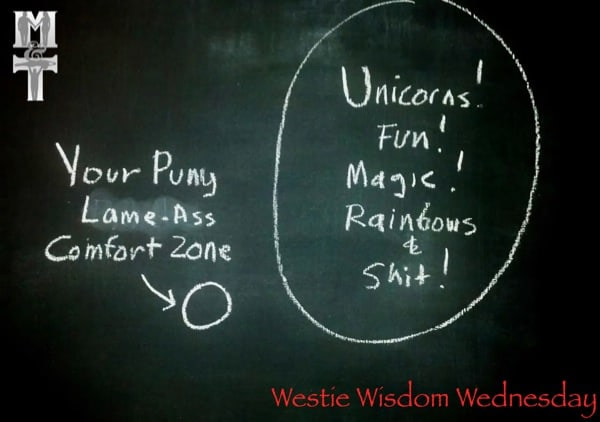 M
&
T
Your Puny
Lame-Ass
Comfort Zone
Unicorns!
Fun!
Magic!
Rainbows
&
Shit!
Westie Wisdom Wednesday